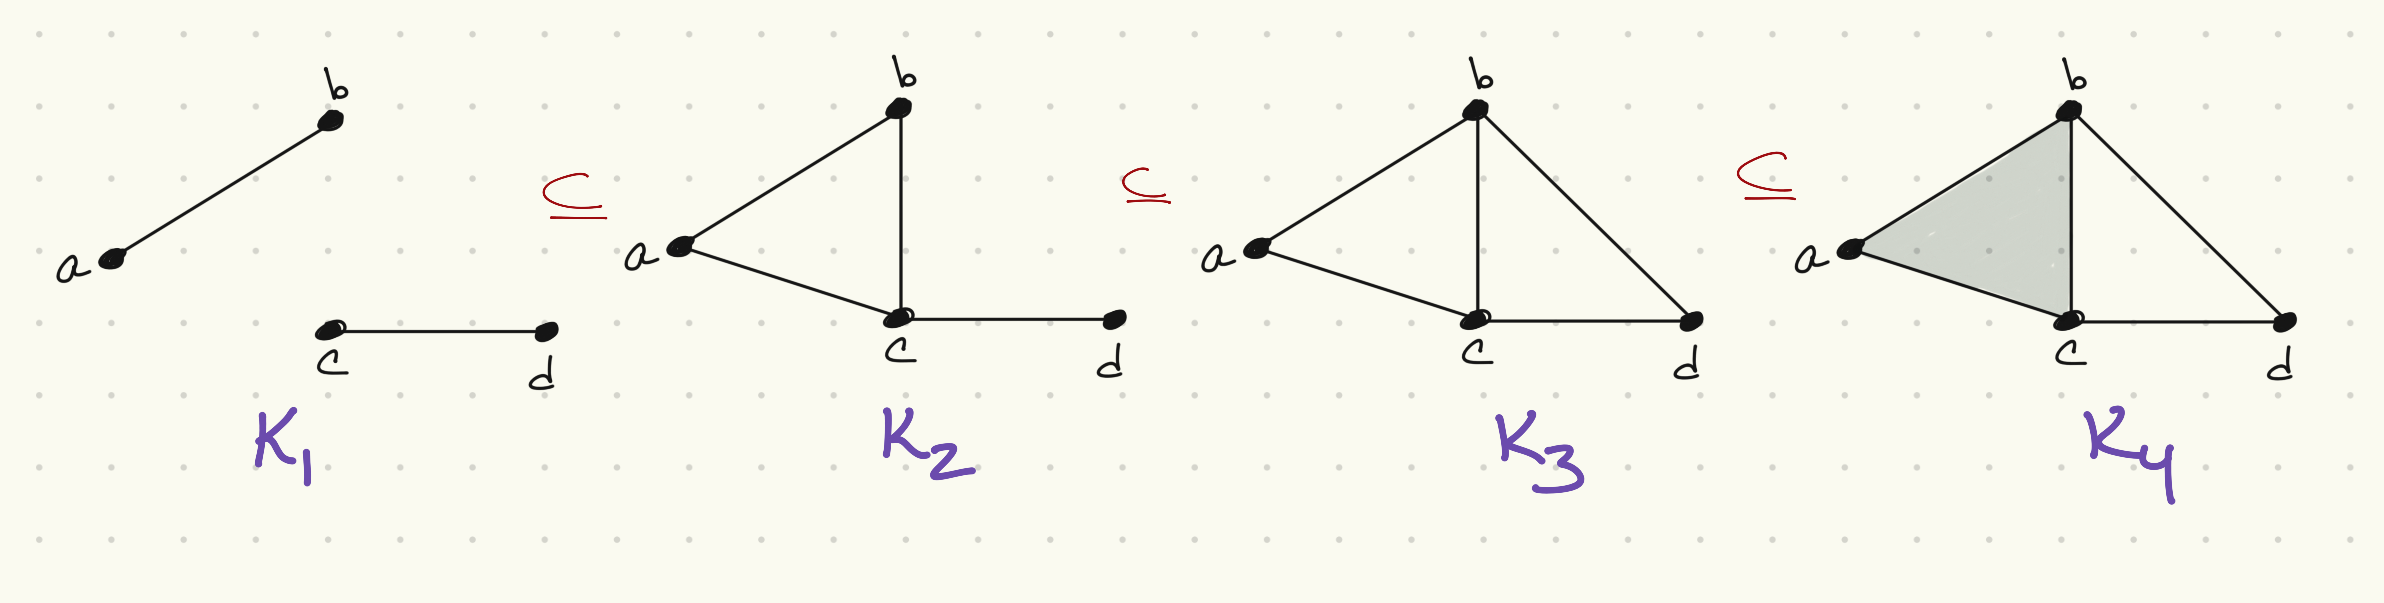 b
a
c
d
K1
⊆
b
a
c
d
K2
⊆
b
a
c
d
K3
⊆
b
a
c
d
K4